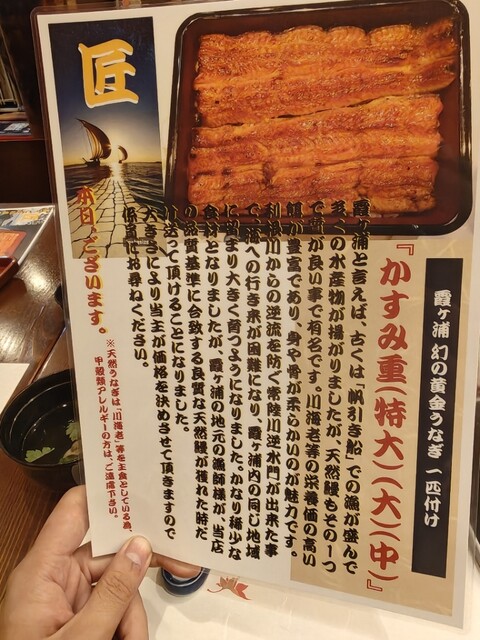 霞ヶ浦 幻の黄金うなぎ 一匹付け
『かすみ重(特大)(大)(中)』
霞ヶ浦と言えば、古くは「帆引き船」での漁が盛んで
多くの水産物が揚がりましたが、天然鰻もその1つ
で質が良い事で有名です。川海老等の栄養価の高い
餌が豊富であり、身や骨が柔らかいのが魅力です。
利根川からの逆流を防ぐ常陸川逆水門が出来た事
で、海への行き来が困難になり、霞ヶ浦内の同じ地域
に留まり大きく育つようになりました。かなり稀少な
食材となりましたが、霞ヶ浦の地元の漁師様が、当店
の品質基準に合致する良質な天然鰻が獲れた時だ
け送って頂けることになりました。
大きさにより当主が価格を決めさせて頂きますので
係員にお尋ねください。
匠
本日、ございます。
※天然うなぎは「川海老」等を主食としている為、
甲殻類アレルギーの方は、ご遠慮下さい。